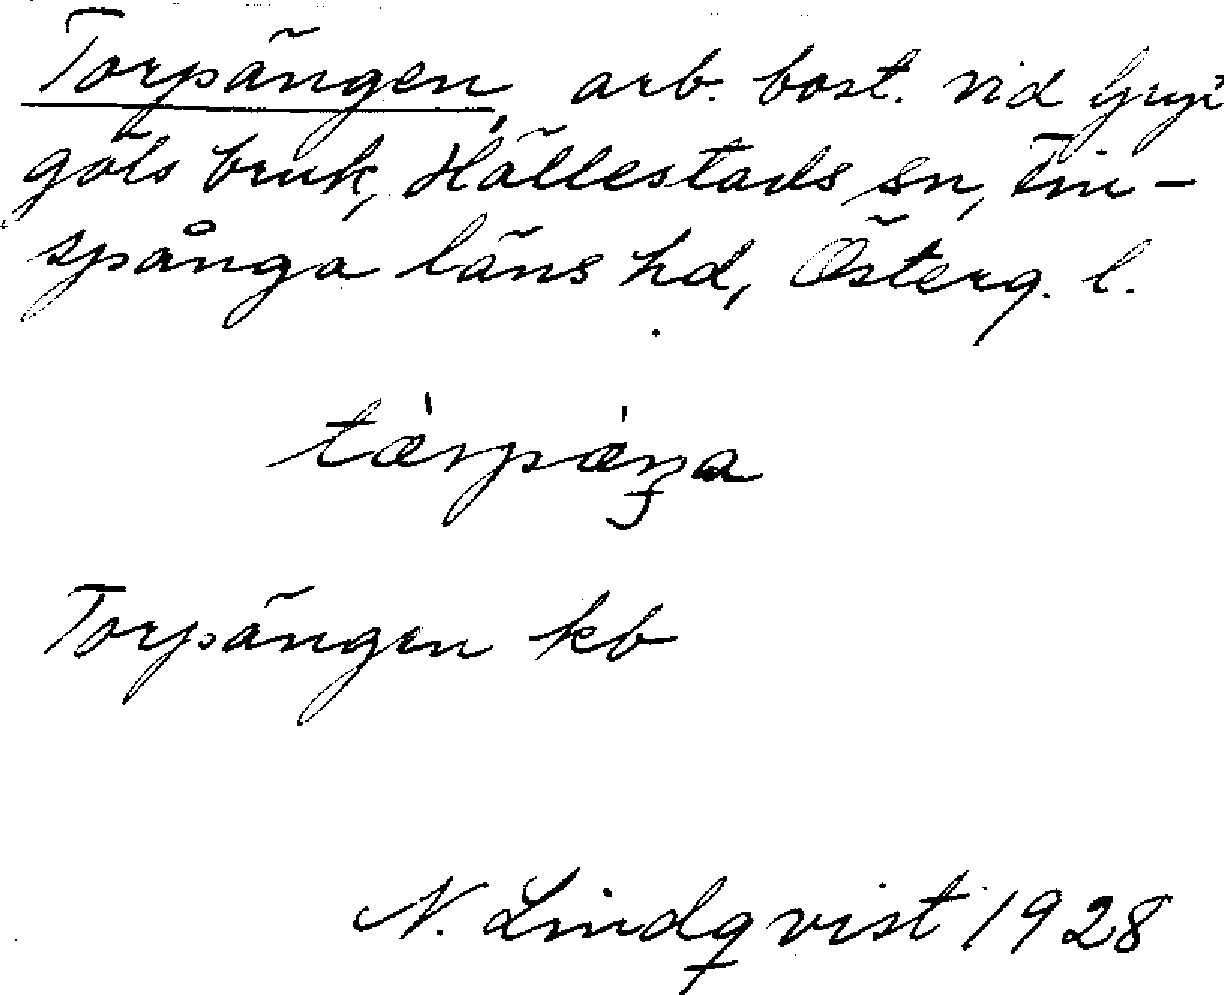 Torpängen, arb. bost. vid Gryt
göls bruk, Hällestads sn, Fin-
spånga läns hd, Österg. l.
Torpängen kb
N. Lindqvist 1928